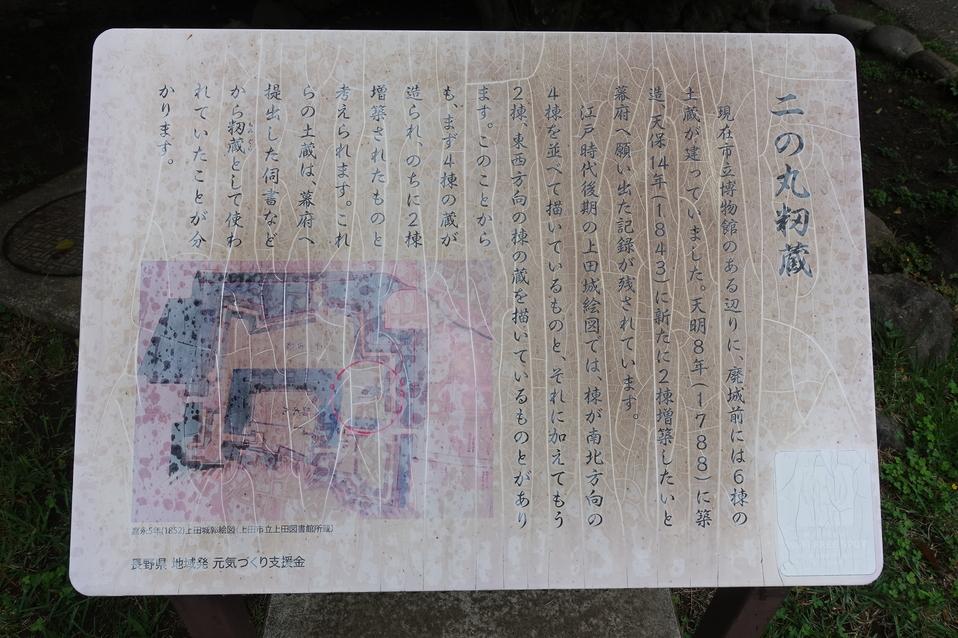 二の丸籾蔵
現在市立博物館のある辺りに、廃城前には6棟の
土蔵が建っていました。天明8年(1788)に築
造、天保14年(1843)に新たに2棟増築したいと
幕府へ願い出た記録が残されています。
江戸時代後期の上田城絵図では 棟が南北方向の
4棟を並べて描いているものと、それに加えてもう
2棟、東西方向の棟の蔵を描いているものとがあり
ます。このことから
も、まず4棟の蔵が
造られ、のちに2棟
増築されたものと
考えられます。これ
らの土蔵は、幕府へ
提出した伺書など
から籾蔵として使わ
れていたことが分
かります。
嘉永5年(1852)上田城郭絵図(上田市立上田図書館所蔵)
長野県 地域発 元気づくり支援金